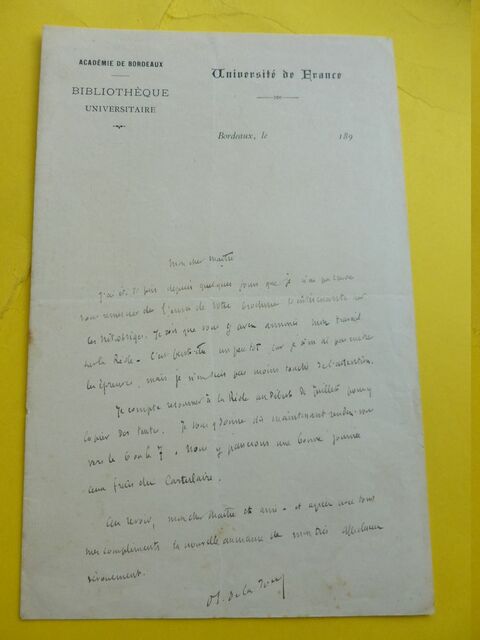 ACADÉMIE DE BORDEAUX
BIBLIOTHÈQUE
UNIVERSITAIRE
Université de France
Bordeaux, le 189
Mon cher Maître
J'ai été si pris depuis quelques jours que je n'ai pu encore
vous remercier de l'envoi de votre brochure si intéressante sur
les Nitiobriges. Je vois que vous y avez annoncé mon travail
sur la Réole. C'est peut-être un peu tôt car je n'ai pas encore
les épreuves, mais je n'en suis pas moins touché de l'attention.
Je compte retourner à la Réole au début de juillet pour y
copier des textes. Je vous y donne dès maintenant rendez-vous
vers le 6 ou le 7. Nous y passerons une bonne journée
aux frais du Cartulaire.
Au revoir, mon cher Maître et ami - et agréez avec tous
mes compliments la nouvelle assurance de mon très affectueux
dévouement.